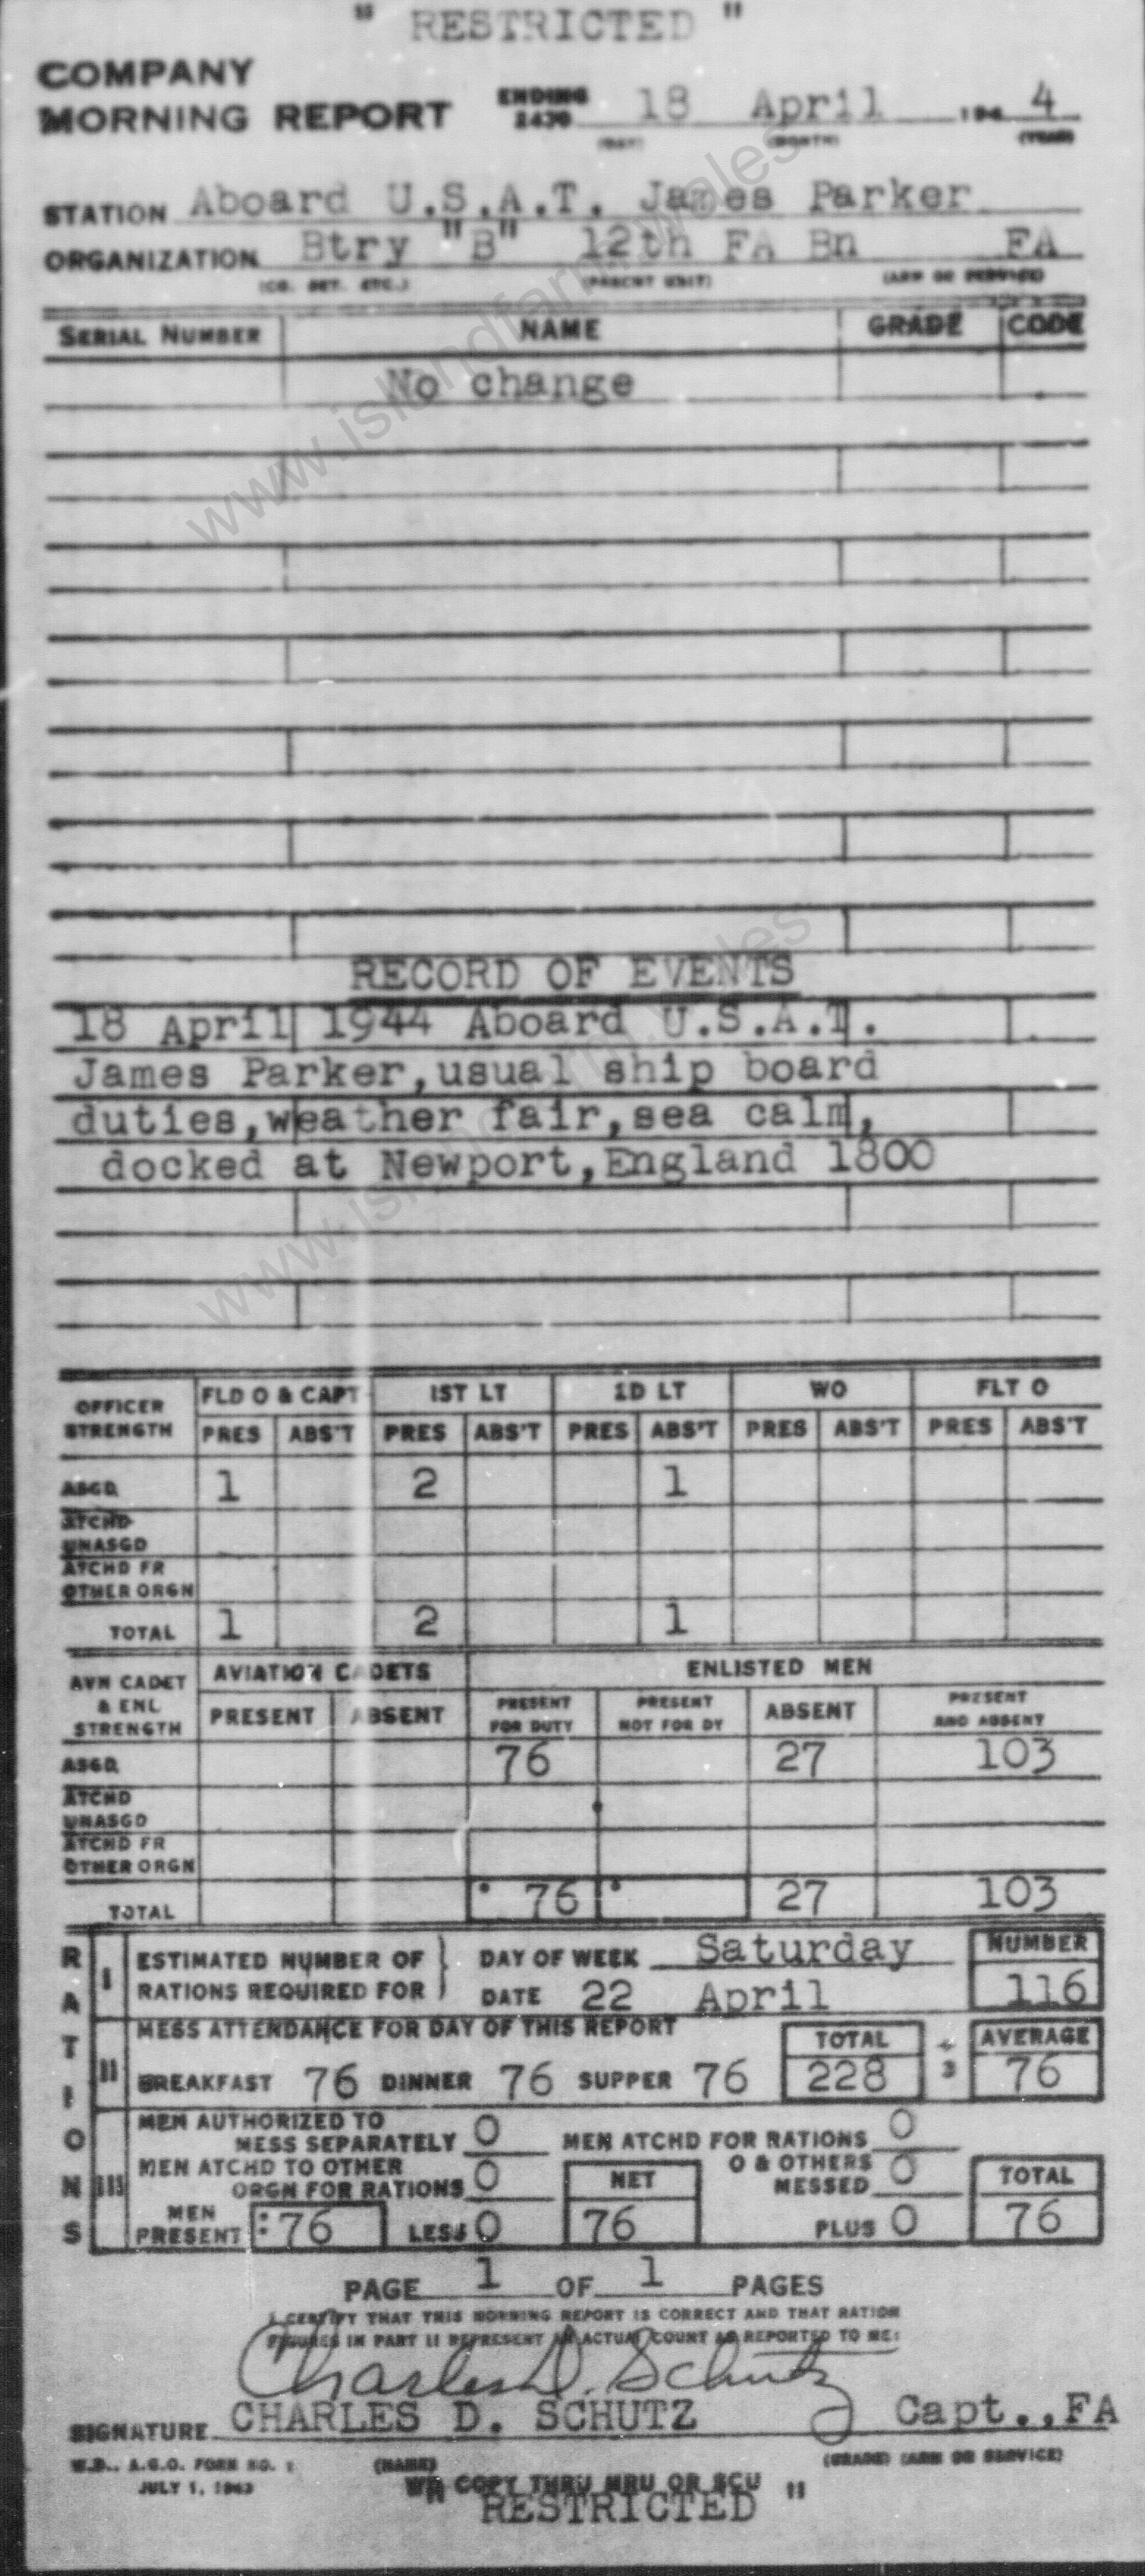 " RESTRICTED "
COMPANY
MORNING REPORT ENDING 2400 18 April 194 4
(DAY) (MONTH) (YEAR)
STATION Aboard U.S.A.T. James Parker
ORGANIZATION Btry "B" 12th FA Bn FA
(CO. DET. ETC.) (PARENT UNIT) (ARM OR SERVICE)
SERIAL NUMBER NAME GRADE CODE
No change
www.islandfarm.wales
RECORD OF EVENTS
18 April 1944 Aboard U.S.A.T.
James Parker,usual ship board
duties,weather fair,sea calm,
docked at Newport,England 1800
www.islandfarm.wales
OFFICER STRENGTH FLD O & CAPT 1ST LT 2D LT WO FLT O
PRES ABS'T PRES ABS'T PRES ABS'T PRES ABS'T PRES ABS'T
ASGD 1 2 1
ATCHD UNASGD
ATCHD FR OTHER ORGN
TOTAL 1 2 1
AVN CADET & ENL STRENGTH AVIATION CADETS ENLISTED MEN
PRESENT ABSENT PRESENT FOR DUTY PRESENT NOT FOR DY ABSENT PRESENT AND ABSENT
ASGD 76 27 103
ATCHD UNASGD
ATCHD FR OTHER ORGN
TOTAL 76 27 103
RATIONS
I ESTIMATED NUMBER OF DAY OF WEEK Saturday NUMBER
RATIONS REQUIRED FOR DATE 22 April 116
II MESS ATTENDANCE FOR DAY OF THIS REPORT TOTAL ÷ AVERAGE
BREAKFAST 76 DINNER 76 SUPPER 76 228 3 76
III MEN AUTHORIZED TO
MESS SEPARATELY 0 MEN ATCHD FOR RATIONS 0
MEN ATCHD TO OTHER ORGN FOR RATIONS 0 NET O & OTHERS MESSED 0 TOTAL
MEN PRESENT 76 LESS 0 76 PLUS 0 76
PAGE 1 OF 1 PAGES
I CERTIFY THAT THIS MORNING REPORT IS CORRECT AND THAT RATION
FIGURES IN PART II REPRESENT AN ACTUAL COUNT AS REPORTED TO ME:
Charles D. Schutz
SIGNATURE CHARLES D. SCHUTZ Capt.,FA
(NAME) (GRADE) (ARM OR SERVICE)
W.D., A.G.O. FORM NO. 1
JULY 1, 1943
WD COPY THRU MRU OR SCU
" RESTRICTED "